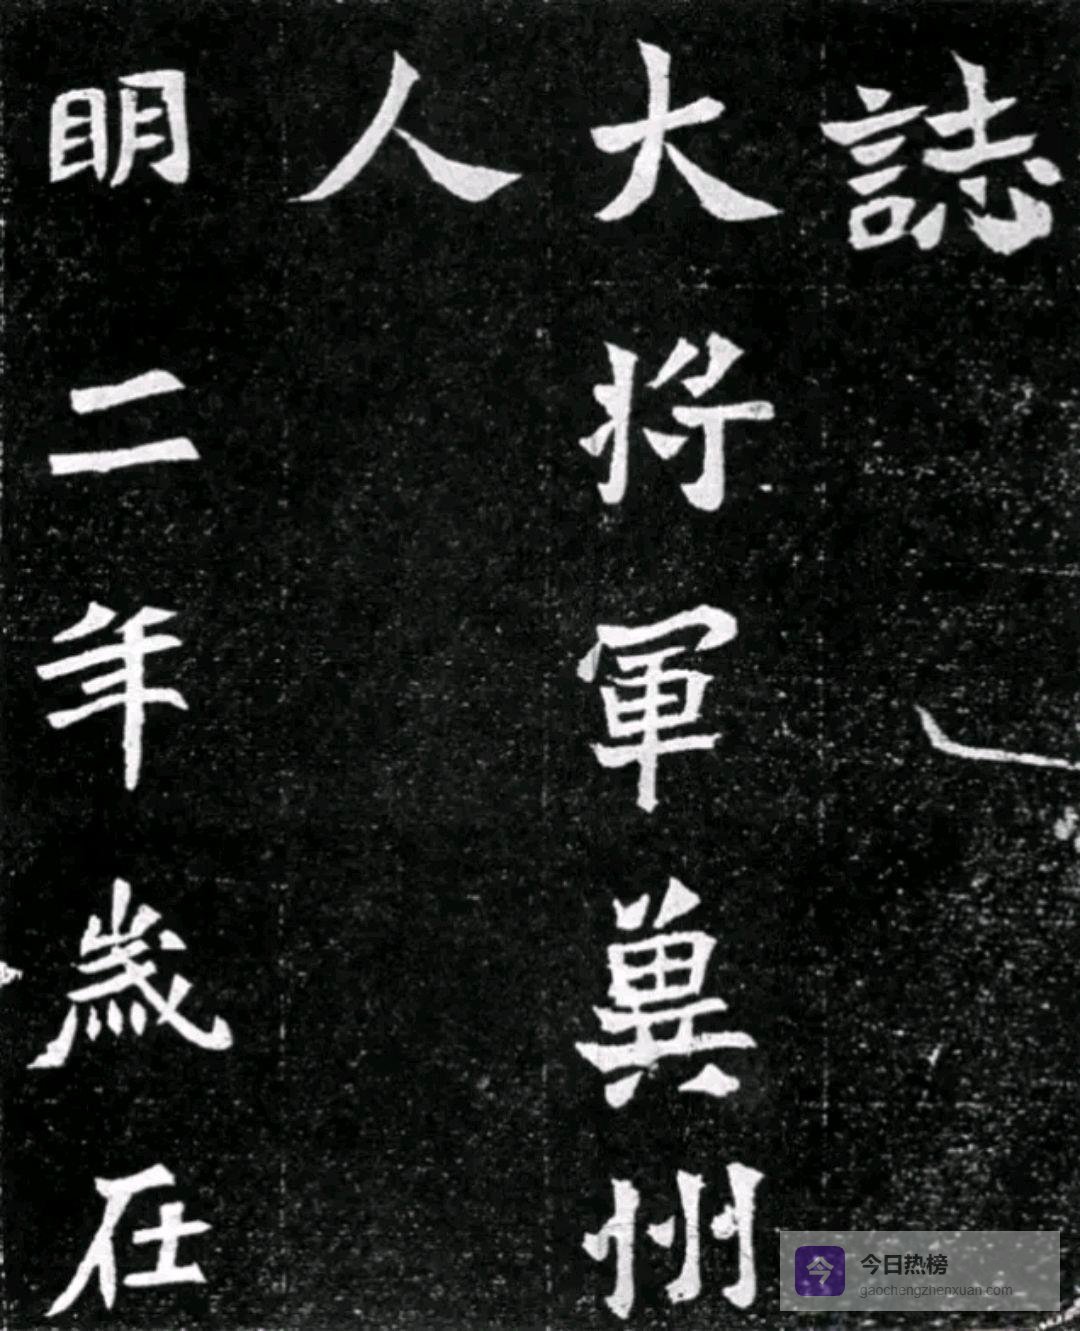 誌
大將軍冀州
人
明二年歲在
今 今日热榜
gaochengzhenxuan.com